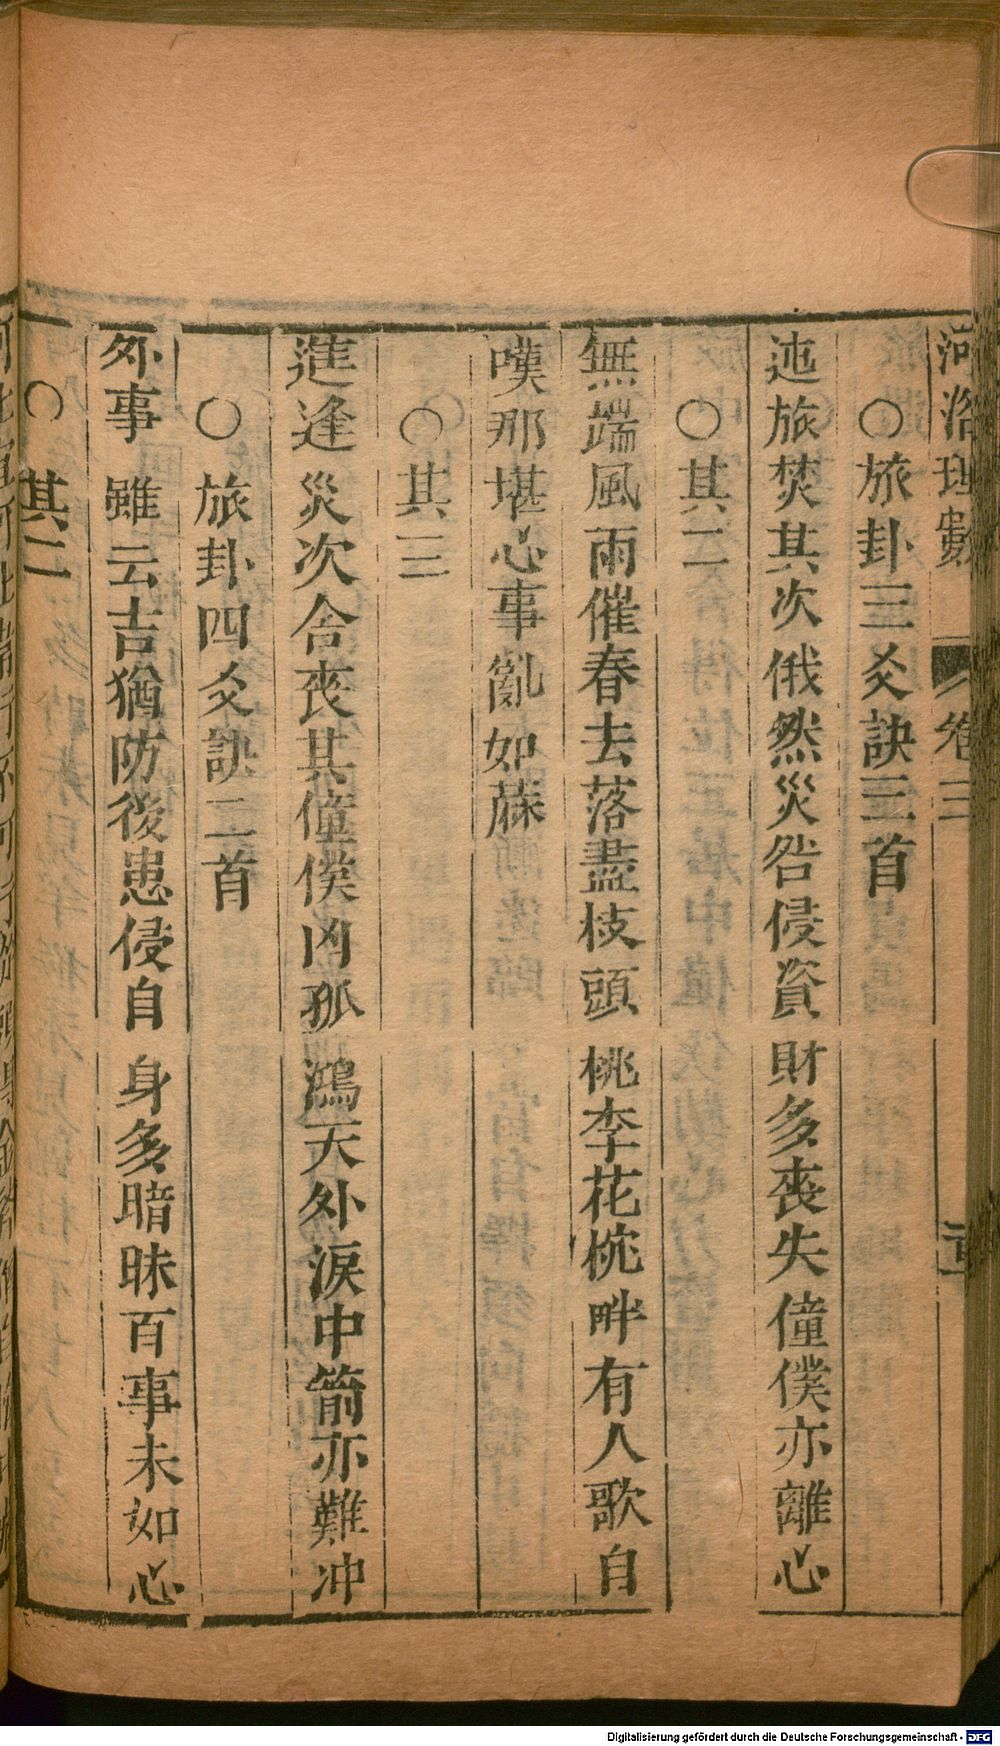 河洛理數 卷三
○旅卦三爻訣三首
迍旅焚其次俄然災咎侵資財多喪失僮僕亦離心
○其二
無端風雨催春去落盡枝頭桃李花㭇畔有人歌自
嘆那堪心事亂如蔴
○其三
進逢災次合喪其僮僕凶孤鴻天外淚中箭亦難冲
○旅卦四爻訣二首
外事雖云吉猶防後患侵自身多暗昧百事未如心
○其二
Digitalisierung gefördert durch die Deutsche Forschungsgemeinschaft - DFG